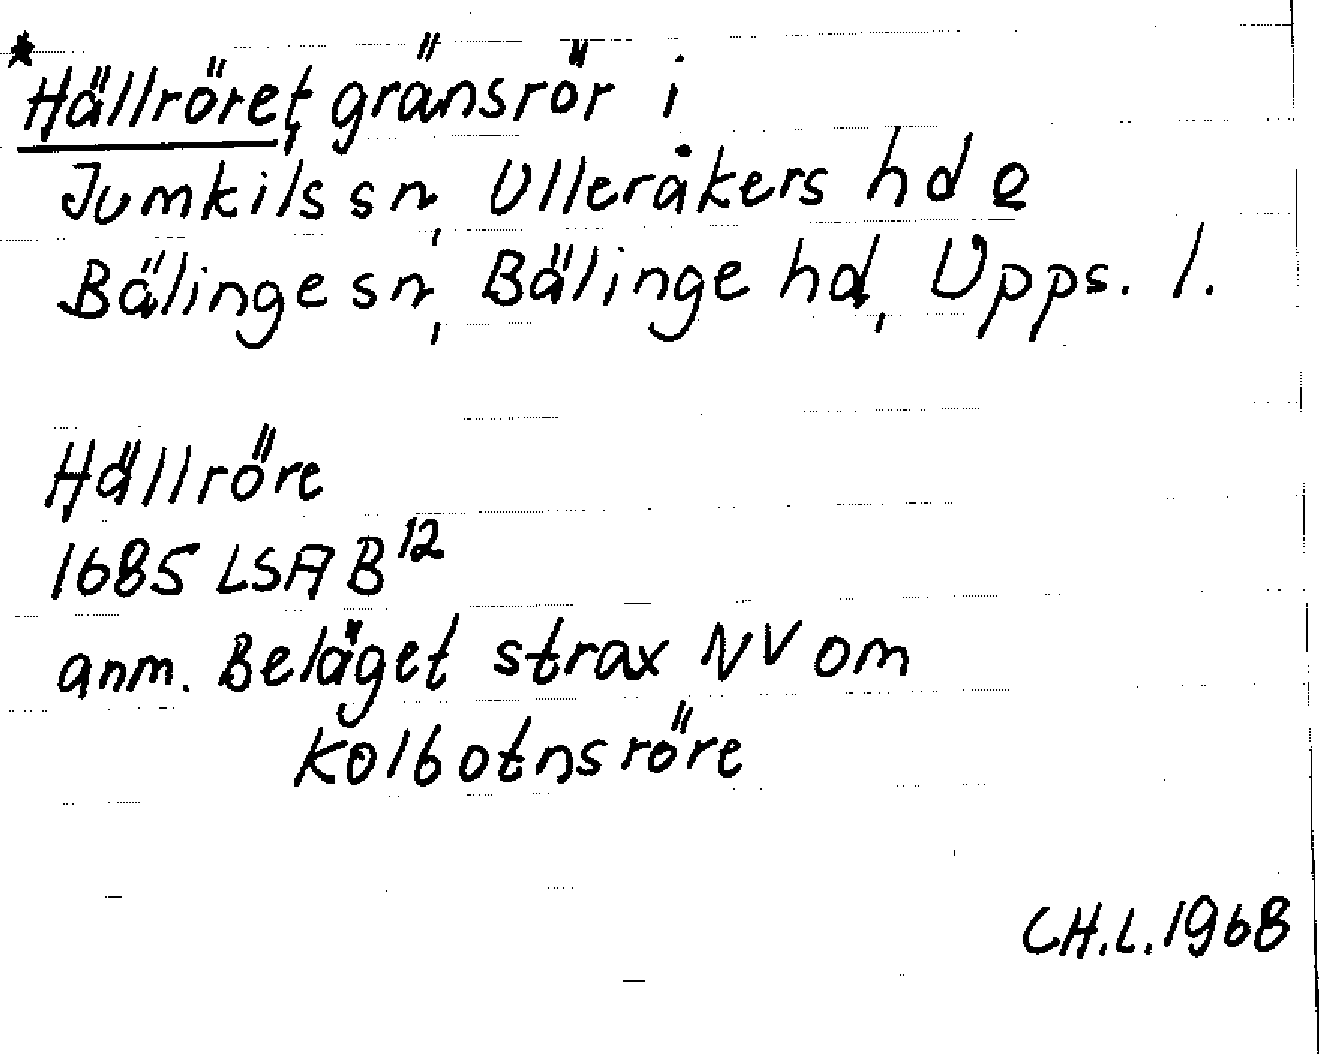 *Hällröret, gränsrör i
Jumkils sn, Ulleråkers hd o
Bälinge sn, Bälinge hd, Upps. l.
Hällröre
1685 LSA B12
anm. Beläget strax NV om
Kolbotnsröre
CH.L.1968